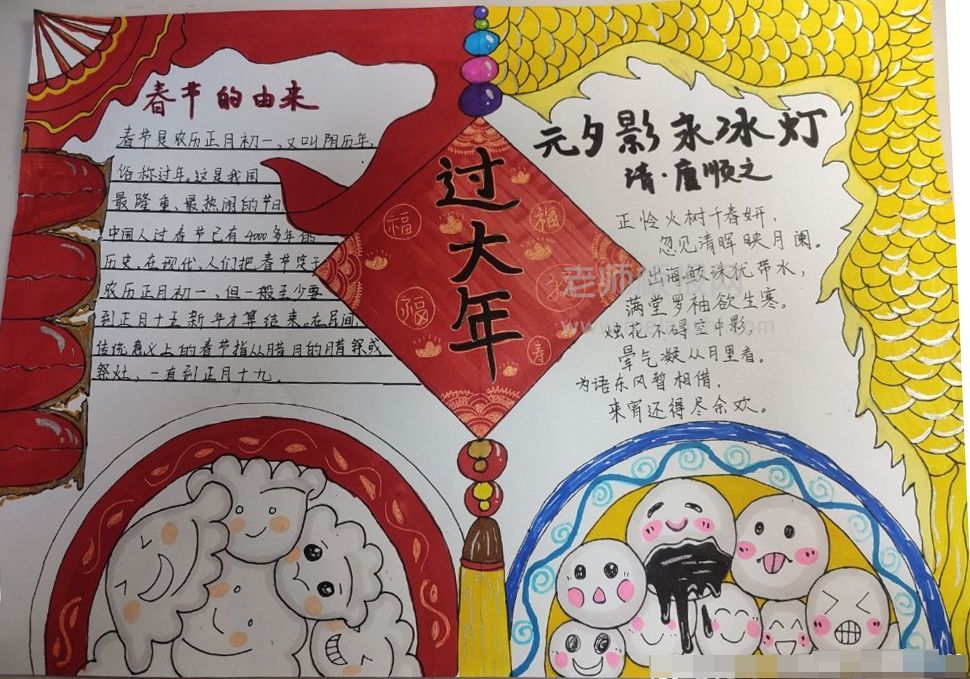 春节的由来
春节是农历正月初一,又叫阴历年,
俗称过年。这是我国
最隆重、最热闹的节日。
中国人过春节已有4000多年的
历史,在现代,人们把春节定于
农历正月初一,但一般至少要
到正月十五新年才算结束。在民间,
传统意义上的春节指从腊月的腊祭或
祭灶,一直到正月十九。
过大年
福
福
福
寿
元夕影永冰灯
清·唐顺之
正怜火树千春妍,
忽见清晖映月阑。
出海鲛珠犹带水,
满堂罗袖欲生寒。
烛花不碍空中影,
晕气凝从月里看。
为语东风暂相借,
来宵还得尽余欢。